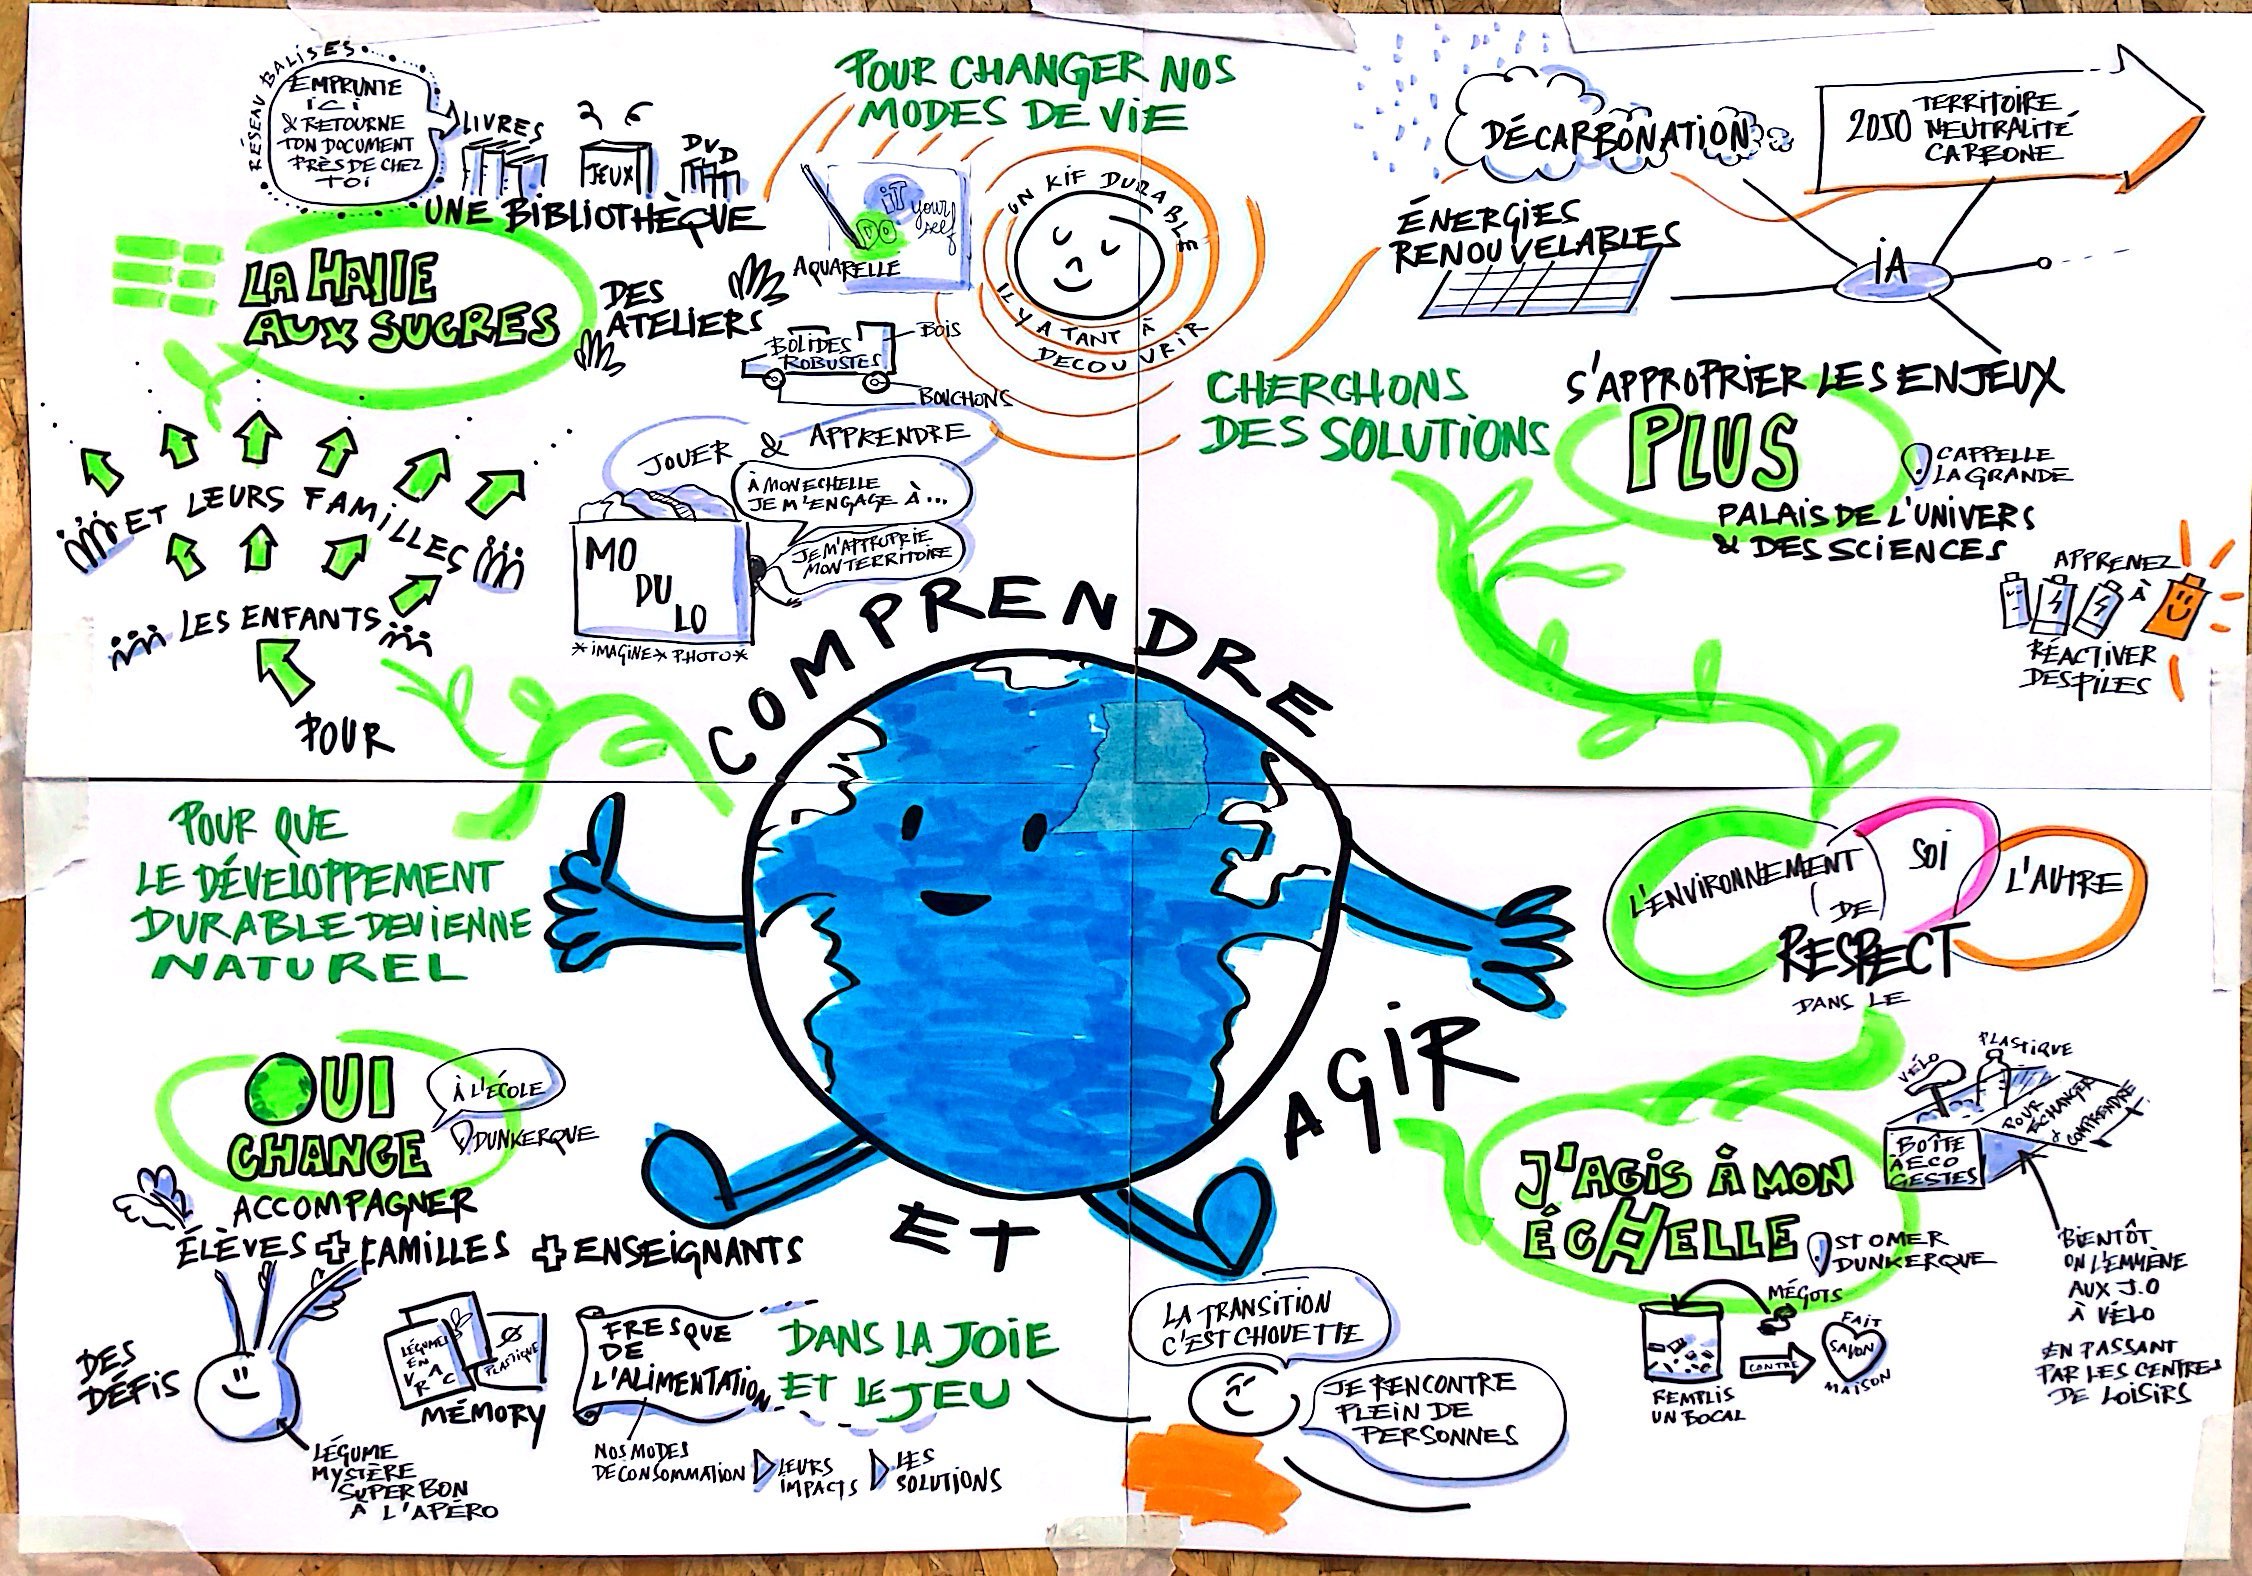 RÉSEAU BALISES
EMPRUNTE
ICI
& RETOURNE
TON DOCUMENT
PRÈS DE CHEZ
TOI
LIVRES
JEUX
DVD
UNE BIBLIOTHÈQUE
LA HALLE
AUX SUCRES
DES
ATELIERS
POUR CHANGER NOS
MODES DE VIE
DO
IT
your
self
AQUARELLE
BOLIDES
ROBUSTES
BOIS
BOUCHONS
UN KIF DURABLE
IL Y A TANT À
DECOUVRIR
JOUER & APPRENDRE
À MON ECHELLE
JE M'ENGAGE À...
JE M'APPROPRIE
MON TERRITOIRE
MO
DU
LO
*IMAGINE*PHOTO*
ET LEURS FAMILLES
LES ENFANTS
POUR
DÉCARBONATION
2050 TERRITOIRE
NEUTRALITÉ
CARBONE
ÉNERGIES
RENOUVELABLES
IA
CHERCHONS
DES SOLUTIONS
S'APPROPRIER LES ENJEUX
PLUS
CAPPELLE
LA GRANDE
PALAIS DE L'UNIVERS
& DES SCIENCES
APPRENEZ
À
RÉACTIVER
DES PILES
COMPRENDRE
ET
AGIR
POUR QUE
LE DÉVELOPPEMENT
DURABLE DEVIENNE
NATUREL
OUI
CHANGE
À L'ÉCOLE
DUNKERQUE
ACCOMPAGNER
ÉLÈVES + FAMILLES + ENSEIGNANTS
DES
DÉFIS
LÉGUME
MYSTÈRE
SUPER BON
À L'APÉRO
LÉGUMES
EN
VRAC
Ø
PLASTIQUE
MÉMORY
FRESQUE
DE
L'ALIMENTATION
NOS MODES
DE CONSOMMATION
LEURS
IMPACTS
LES
SOLUTIONS
DANS LA JOIE
ET LE JEU
LA TRANSITION
C'EST CHOUETTE
JE RENCONTRE
PLEIN DE
PERSONNES
L'ENVIRONNEMENT
SOI
L'AUTRE
DE
RESPECT
DANS LE
J'AGIS À MON
ÉCHELLE
ST OMER
DUNKERQUE
VÉLO
PLASTIQUE
POUR
ÉCHANGER
&
COMPRENDRE
BOÎTE
À ECO
GESTES
BIENTÔT
ON L'EMMÈNE
AUX J.O
À VÉLO
EN PASSANT
PAR LES CENTRES
DE LOISIRS
MÉGOTS
REMPLIS
UN BOCAL
CONTRE
FAIT
SAVON
MAISON